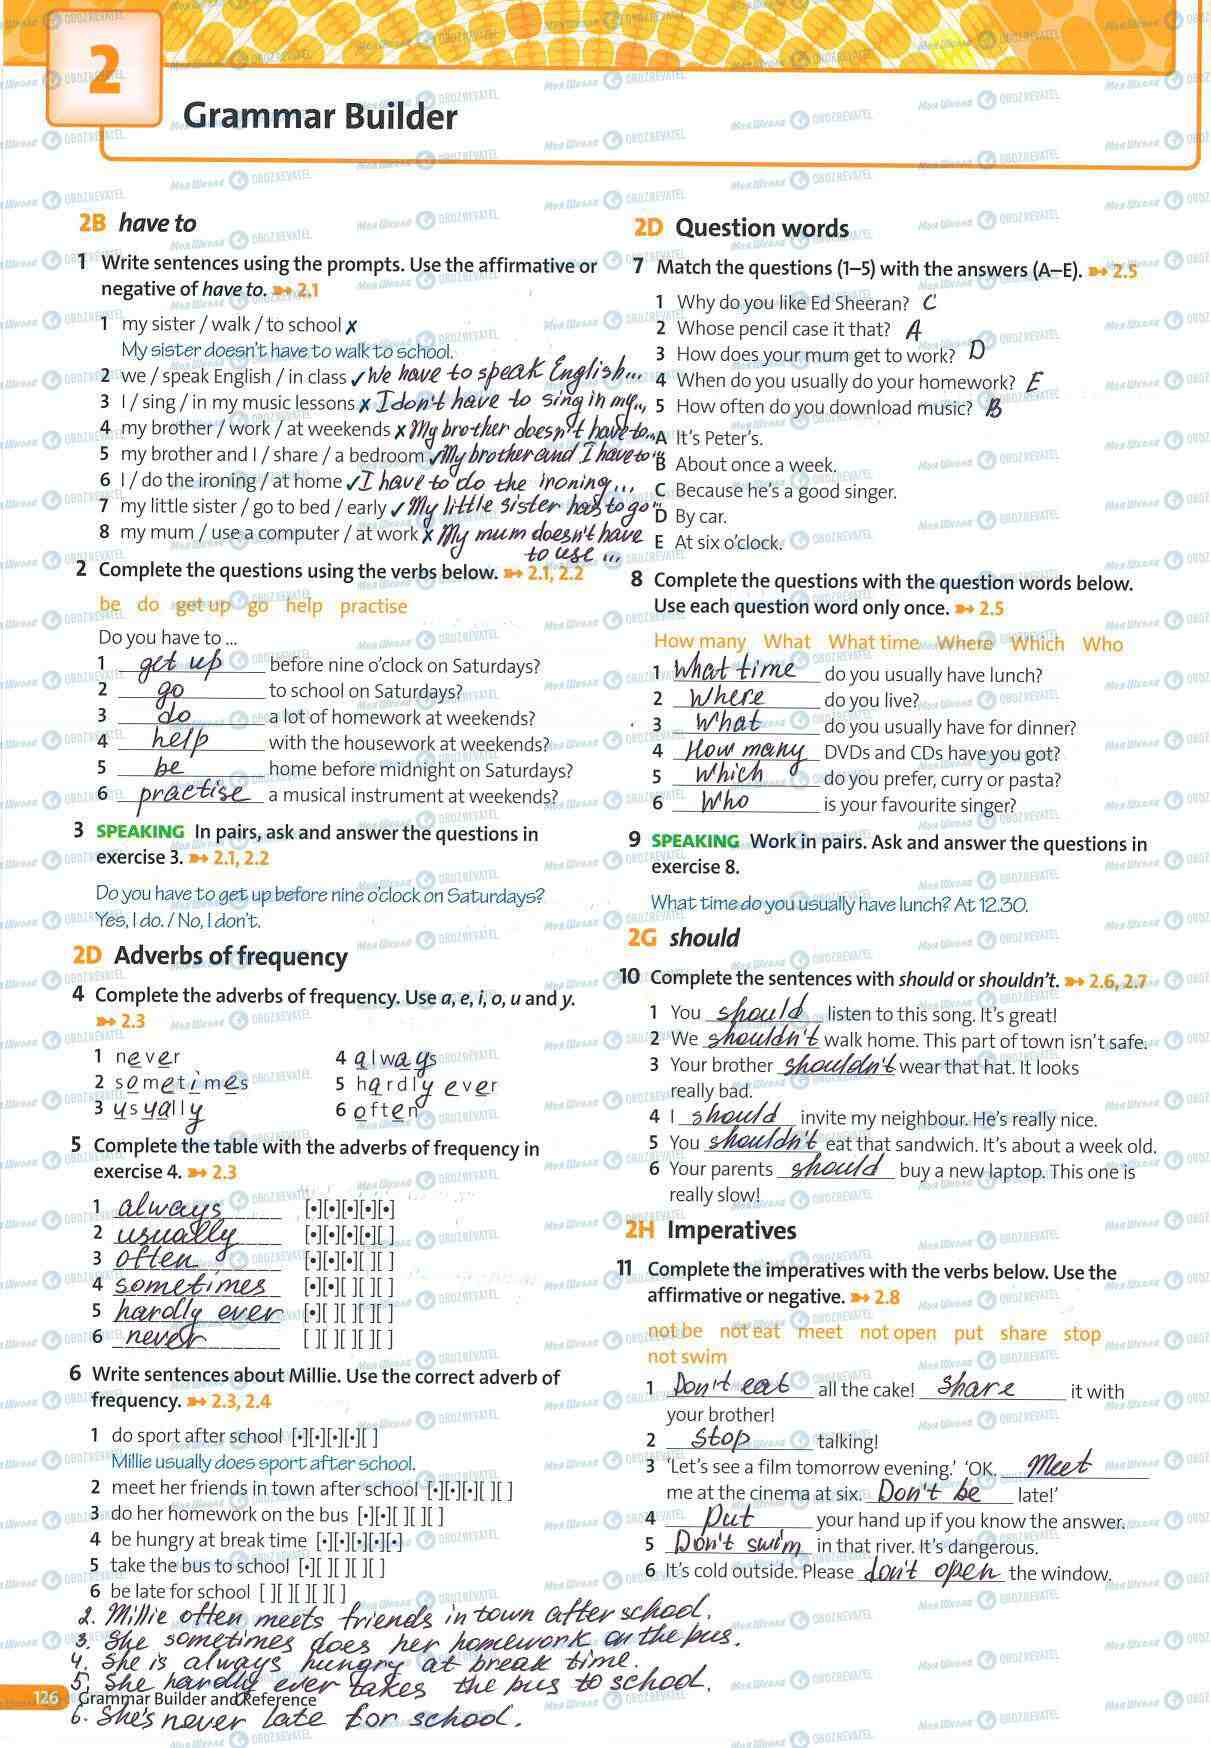 2
Grammar Builder
2B have to
1 Write sentences using the prompts. Use the affirmative or
negative of have to. ➻ 2.1
1 my sister / walk / to school ✗
My sister doesn't have to walk to school.
2 we / speak English / in class ✓ We have to speak English...
3 I / sing / in my music lessons ✗ I don't have to sing in my..,
4 my brother / work / at weekends ✗ My brother doesn't have to..
5 my brother and I / share / a bedroom ✓ My brother and I have to ..
6 I / do the ironing / at home ✓ I have to do the ironing...
7 my little sister / go to bed / early ✓ My little sister has to go ...
8 my mum / use a computer / at work ✗ My mum doesn't have
to use ...
2 Complete the questions using the verbs below. ➻ 2.1, 2.2
be do get up go help practise
Do you have to ...
1 get up before nine o'clock on Saturdays?
2 go to school on Saturdays?
3 do a lot of homework at weekends?
4 help with the housework at weekends?
5 be home before midnight on Saturdays?
6 practise a musical instrument at weekends?
3 SPEAKING In pairs, ask and answer the questions in
exercise 3. ➻ 2.1, 2.2
Do you have to get up before nine o'clock on Saturdays?
Yes, I do. / No, I don't.
2D Adverbs of frequency
4 Complete the adverbs of frequency. Use a, e, i, o, u and y.
➻ 2.3
1 never 4 always
2 sometimes 5 hardly ever
3 usually 6 often
5 Complete the table with the adverbs of frequency in
exercise 4. ➻ 2.3
1 always [•][•][•][•][•]
2 usually [•][•][•][•][ ]
3 often [•][•][•][ ][ ]
4 sometimes [•][•][ ][ ][ ]
5 hardly ever [•][ ][ ][ ][ ]
6 never [ ][ ][ ][ ][ ]
6 Write sentences about Millie. Use the correct adverb of
frequency. ➻ 2.3, 2.4
1 do sport after school [•][•][•][•][ ]
Millie usually does sport after school.
2 meet her friends in town after school [•][•][•][ ][ ]
3 do her homework on the bus [•][•][ ][ ][ ]
4 be hungry at break time [•][•][•][•][•]
5 take the bus to school [•][ ][ ][ ][ ]
6 be late for school [ ][ ][ ][ ][ ]
2. Millie often meets friends in town after school.
3. She sometimes does her homework on the bus.
4. She is always hungry at break time.
5. She hardly ever takes the bus to school.
126 Grammar Builder and Reference
6. She's never late for school.
2D Question words
7 Match the questions (1–5) with the answers (A–E). ➻ 2.5
1 Why do you like Ed Sheeran? C
2 Whose pencil case it that? A
3 How does your mum get to work? D
4 When do you usually do your homework? E
5 How often do you download music? B
A It's Peter's.
B About once a week.
C Because he's a good singer.
D By car.
E At six o'clock.
8 Complete the questions with the question words below.
Use each question word only once. ➻ 2.5
How many What What time Where Which Who
1 What time do you usually have lunch?
2 Where do you live?
3 What do you usually have for dinner?
4 How many DVDs and CDs have you got?
5 Which do you prefer, curry or pasta?
6 Who is your favourite singer?
9 SPEAKING Work in pairs. Ask and answer the questions in
exercise 8.
What time do you usually have lunch? At 12.30.
2G should
10 Complete the sentences with should or shouldn't. ➻ 2.6, 2.7
1 You should listen to this song. It's great!
2 We shouldn't walk home. This part of town isn't safe.
3 Your brother shouldn't wear that hat. It looks
really bad.
4 I should invite my neighbour. He's really nice.
5 You shouldn't eat that sandwich. It's about a week old.
6 Your parents should buy a new laptop. This one is
really slow!
2H Imperatives
11 Complete the imperatives with the verbs below. Use the
affirmative or negative. ➻ 2.8
not be not eat meet not open put share stop
not swim
1 Don't eat all the cake! share it with
your brother!
2 Stop talking!
3 'Let's see a film tomorrow evening.' 'OK. Meet
me at the cinema at six. Don't be late!'
4 Put your hand up if you know the answer.
5 Don't swim in that river. It's dangerous.
6 It's cold outside. Please don't open the window.